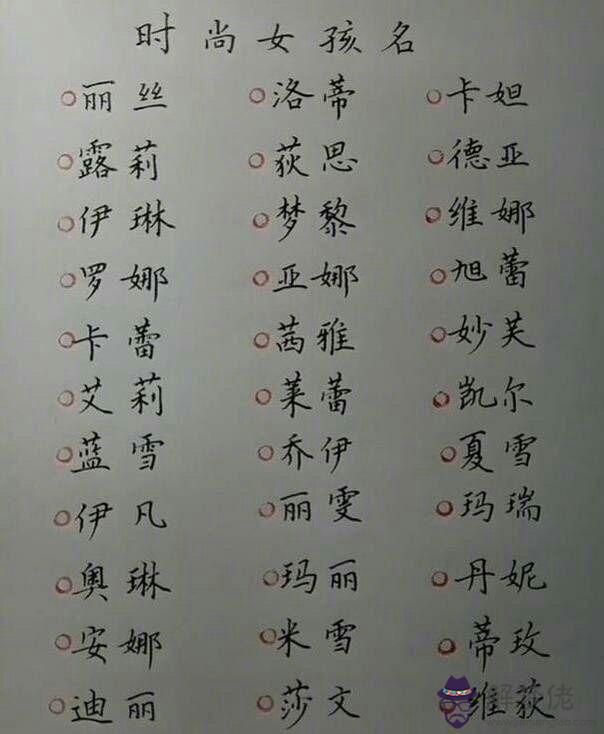 时尚女孩名
丽丝 洛蒂 卡妲
露莉 荻思 德亚
伊琳 梦黎 维娜
罗娜 亚娜 旭蕾
卡蕾 茜雅 妙芙
艾莉 莱蕾 凯尔
蓝雪 乔伊 夏雪
伊凡 丽雯 玛瑞
奥琳 玛丽 丹妮
安娜 米雪 蒂玫
迪丽 莎文 维荻